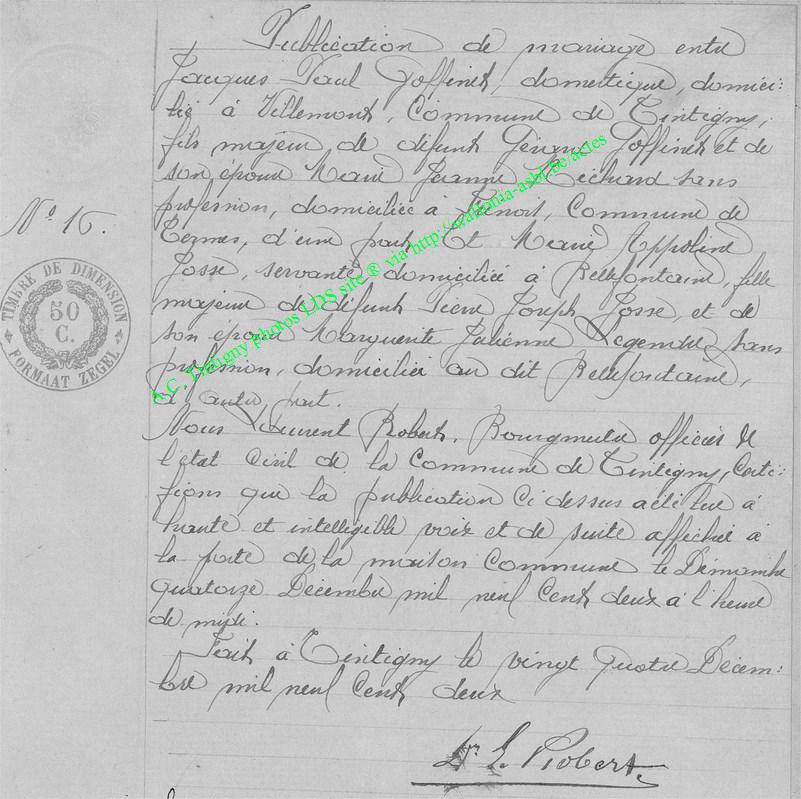 Publication de mariage entre
Jacques Paul Goffinet, domestique, domici-
lié à Villemont, Commune de Tintigny,
fils majeur de défunt Goffinet et de
son épouse Marie Jeanne Richard sans
profession, domiciliée à Frenois, Commune de
Termes, d'une part Et Marie Appoline
Josse, servante domiciliée à Bellefontaine, fille
majeure de défunt Pierre Joseph Josse, et de
son épouse Marguerite Julienne Legendre, sans
profession, domiciliée au dit Bellefontaine,
d'autre part.
Nous Laurent Robert, Bourgmestre officier de
l'état Civil de la Commune de Tintigny, Certi-
fions que la publication Ci dessus a été lue à
haute et intelligible voix et de suite affichée à
la porte de la maison Commune le Dimanche
quatorze Décembre mil neuf Cent deux à l'heure
de midi.
Fait à Tintigny le vingt Quatre Décem-
bre mil neuf Cent deux
L. Robert
No 16.
TIMBRE DE DIMENSION
50
C.
FORMAAT ZEGEL
A.C. Tintigny photos LDS site ® via http://wallonia-asbl.be/actes